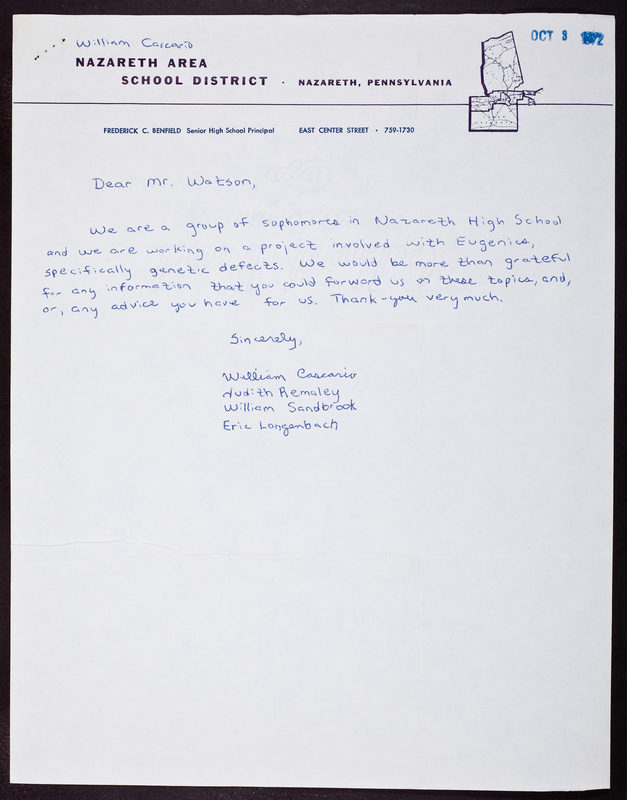 William Cascario
OCT 3 1972
NAZARETH AREA
SCHOOL DISTRICT · NAZARETH, PENNSYLVANIA
FREDERICK C. BENFIELD Senior High School Principal EAST CENTER STREET · 759-1730
Dear Mr. Watson,
We are a group of sophomores in Nazareth High School
and we are working on a project involved with Eugenics,
specifically genetic defects. We would be more than grateful
for any information that you could forward us on these topics, and,
or, any advice you have for us. Thank-you very much.
Sincerely,
William Cascario
Judith Remaley
William Sandbrook
Eric Longenbach